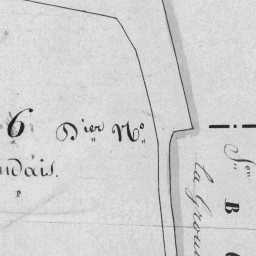 6 D.ier N.o
ndais.
P
S.on B
la Grou